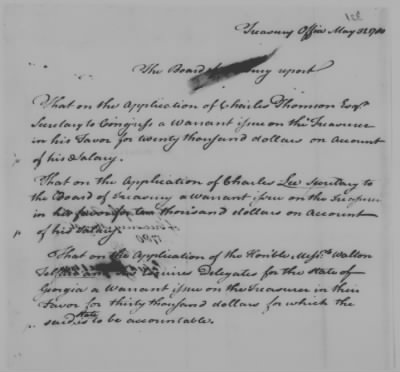 Treasury Office May 31 1780
The Board of Treasury report
That on the Application of Charles Thomson Esqr.
Secretary to Congress a Warrant issue on the Treasurer
in his Favor for twenty thousand dollars on Account
of his Salary.
That on the Application of Charles Lee Secretary to
the Board of Treasury a Warrant issue on the Treasurer
in his favor for ten thousand dollars on Account
of his Salary.
That on the Application of the Honble Messrs. Walton
Telfair and Esquires Delegates for the State of
Georgia a Warrant issue on the Treasurer in their
Favor for thirty thousand dollars for which the
said State is to be accountable.